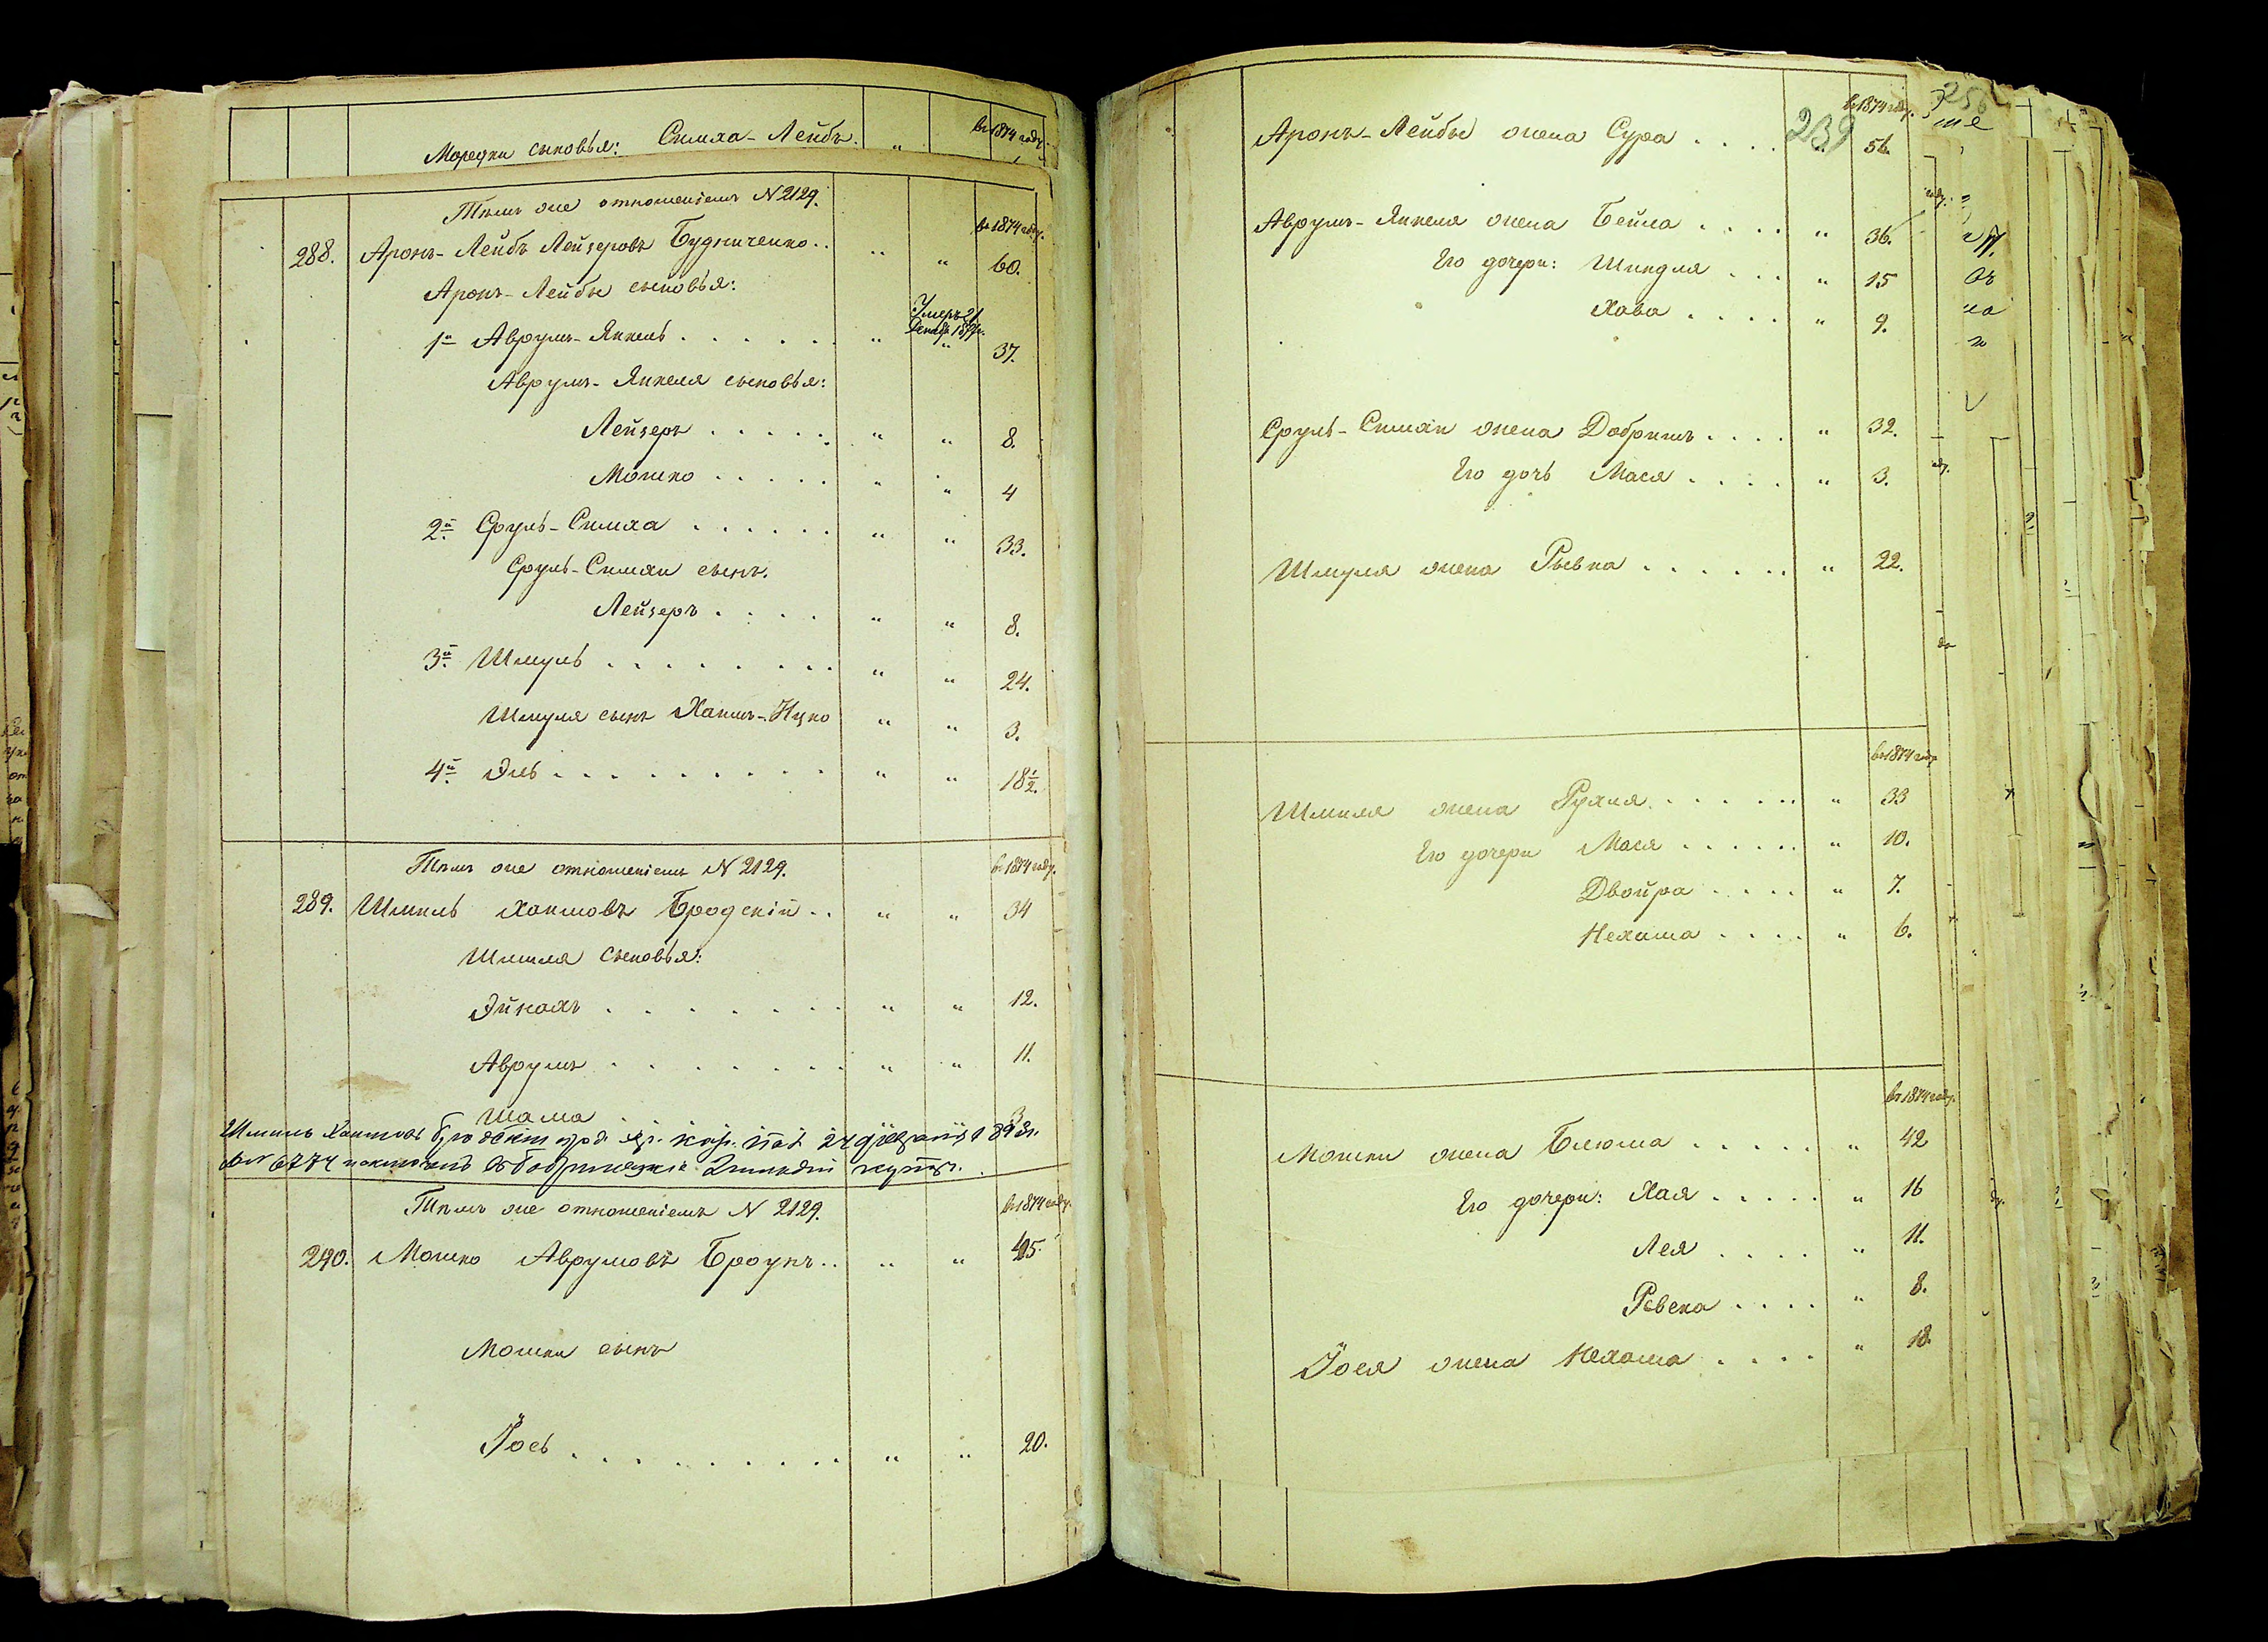 Мордки сыновья: Симха-Лейбъ. " въ 1874 году.
Тѣмъ же отношеніемъ N 2129. въ 1874 году.
288. Аронъ-Лейбъ Лейзеровъ Будниченко.. " " 60.
Аронъ-Лейбы сыновья:
Умеръ 21
Декабр.
1й Аврумъ-Янкель . . . . . . " " 37.
Аврумъ-Янкеля сыновья:
Лейзеръ . . . . . " " 8.
Мошко . . . . . " " 4
2й Сруль-Симха . . . . . . " " 33.
Сруль-Симхи сынъ.
Лейзеръ . . . . " " 8.
3й Шмуль . . . . . . . . " " 24.
Шмуля сынъ Хаимъ-Ицко " " 3.
4й Эль . . . . . . . . . " " 18½.
Тѣмъ же отношеніемъ N 2129. въ 1874 году.
289. Шмиль Хаимовъ Бродскій .. " " 34
Шмиля сыновья:
Эйнохъ . . . . . . . " " 12.
Аврумъ . . . . . . . " " 11.
Шама 3
Шмиль Хаимовъ Бродскій
6774
Тѣмъ же отношеніемъ N 2129. въ 1874 году.
290. Мошко Аврумовъ Броунъ.. " " 45.
Мошки сынъ
Іось . . . . . . . . . . " " 20.
239
въ 1874 году.
Аронъ-Лейбы жена Сура . . . . " 56.
Аврумъ-Янкеля жена Бейла . . . . " 36.
Его дочери: Шиндля . . . " 15
Хава . . . . " 9.
Сруль-Симхи жена Добришъ . . . . " 32.
Его дочь Мася . . . . " 3.
Шмуля жена Рывка . . . . . . " 22.
въ 1874 году
Шмиля жена Рухля . . . . . . " 33
Его дочери Мася . . . . . . " 10.
Двойра . . . . " 7.
Нехама . . . . " 6.
въ 1874 году.
Мошки жена Блюма . . . . . " 42
Его дочери: Хая . . . . . " 16
Лея . . . . " 11.
Ревека . . . . " 8.
Іося жена Нехама . . . . " 18.